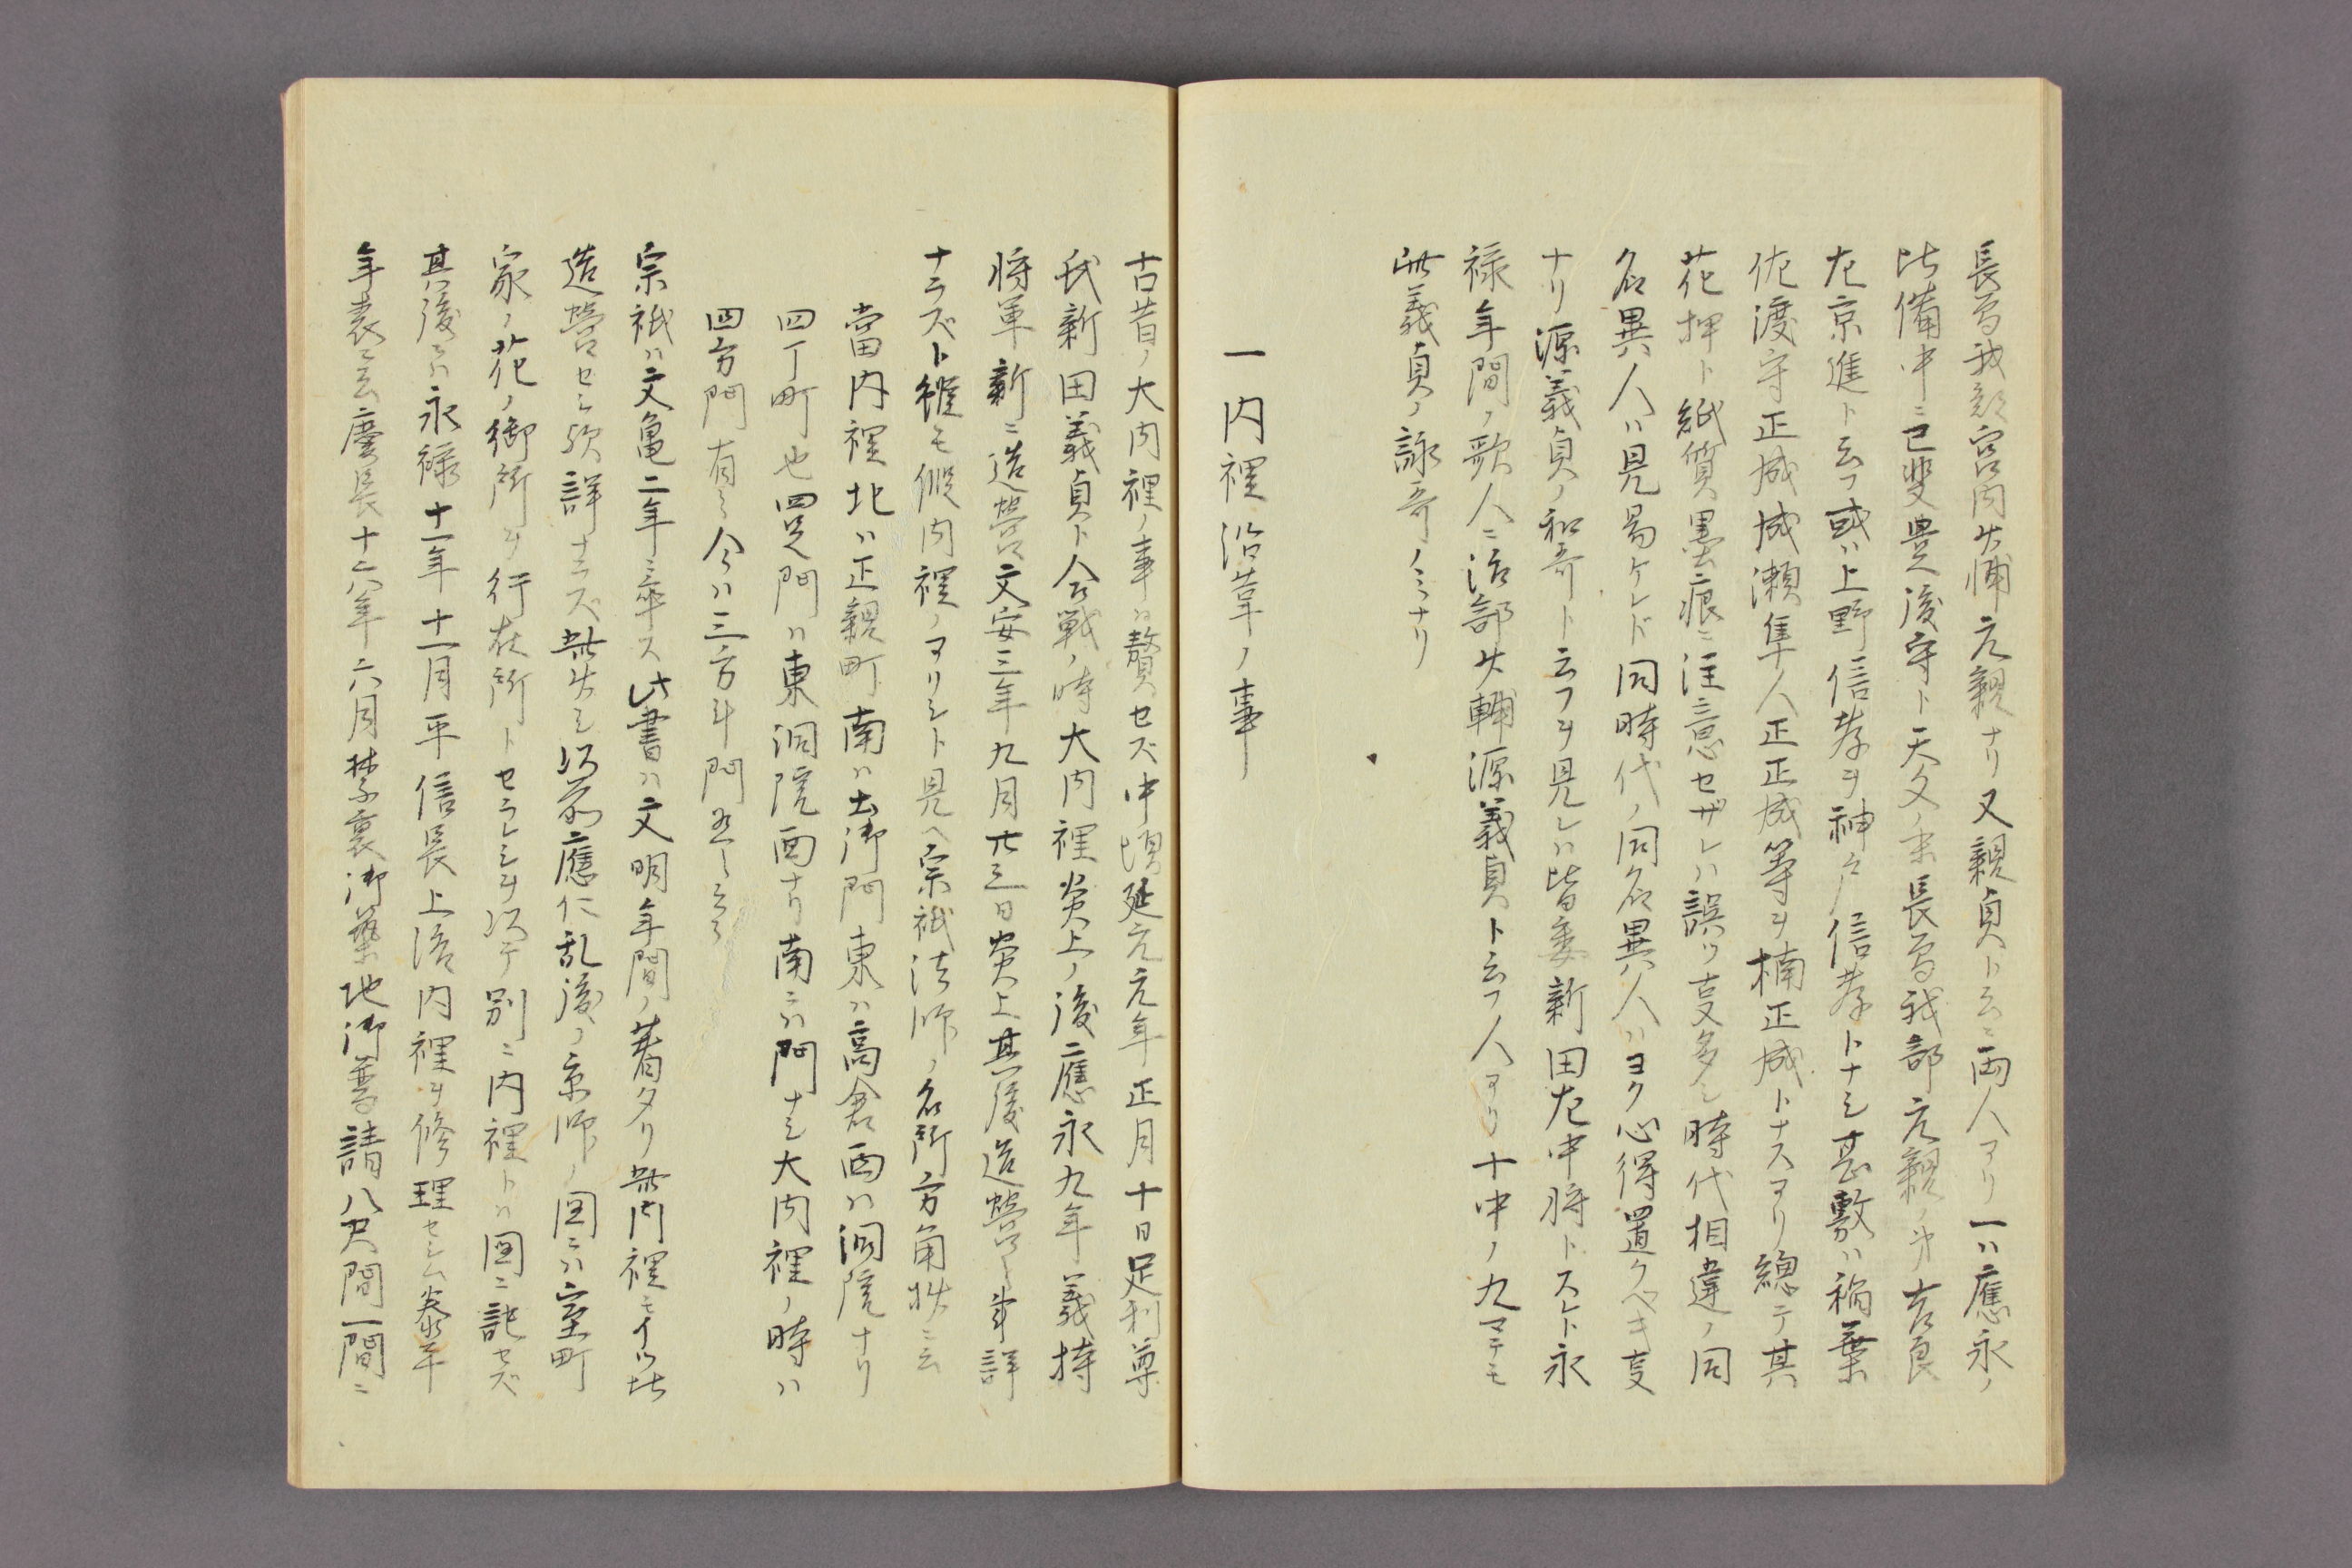 長曽我部宮内少輔元親ナリ又親貞ト云ニ両人アリ一ハ應永ノ
比備中ニ巳斐豊後守ト天文ノ末長曽我部元親ノ弟吉良
左京進ト云フ或ハ上野信孝ヲ神戸信孝トナシ甚敷ハ稲葉
佐渡守正成成瀬隼人正正成等ヲ楠正成トナスアリ總テ其
花押ト紙質墨痕ニ注意セザレハ誤ツ支多シ時代相違ノ同
名異人ハ見易ケレド同時代ノ同名異人ハヨク心得置クベキ支
ナリ源義貞ノ和哥ト云フヲ見レハ皆新田左中将トスレト永
禄年間ノ歌人ニ治部少輔源義貞ト云フ人アリ十中ノ九マテモ
此義貞ノ詠哥ノミナリ
一内裡沿革ノ事
古昔ノ大内裡ノ事ハ贅セズ中頃延元元年正月十日足利尊
氏新田義貞ト合戰ノ時大内裡炎上ノ後應永九年義持
将軍新ニ造營文安三年九月廿三日炎上其後造營ノ年詳
ナラズト雖モ假内裡ノアリシト見ヘ宗祇法師ノ名所方角抄ニ云
當内裡北ハ正親町南ハ土御門東ハ高倉西ハ洞院ナリ
四丁町也四足門ハ東洞院面ナリ南ニハ門ナシ大内裡ノ時ハ
四方門有シ今ハ三方斗門
宗祇ハ文亀二年ニ卒ス此書ハ文明年間ノ著タリ此内裡モイツ比
造營セシ歟詳ナラズ此少シ以前應仁乱後ノ京師ノ図ニハ室町
家ノ花ノ御所ヲ行在所トセラレシヲ以テ別ニ内裡トハ図ニ記セズ
其後ニハ永禄十一年十一月平信長上洛内裡ヲ修理セシム泰平
年表ニ云慶長十六年六月禁裏御築地御普請八尺間一間ニ